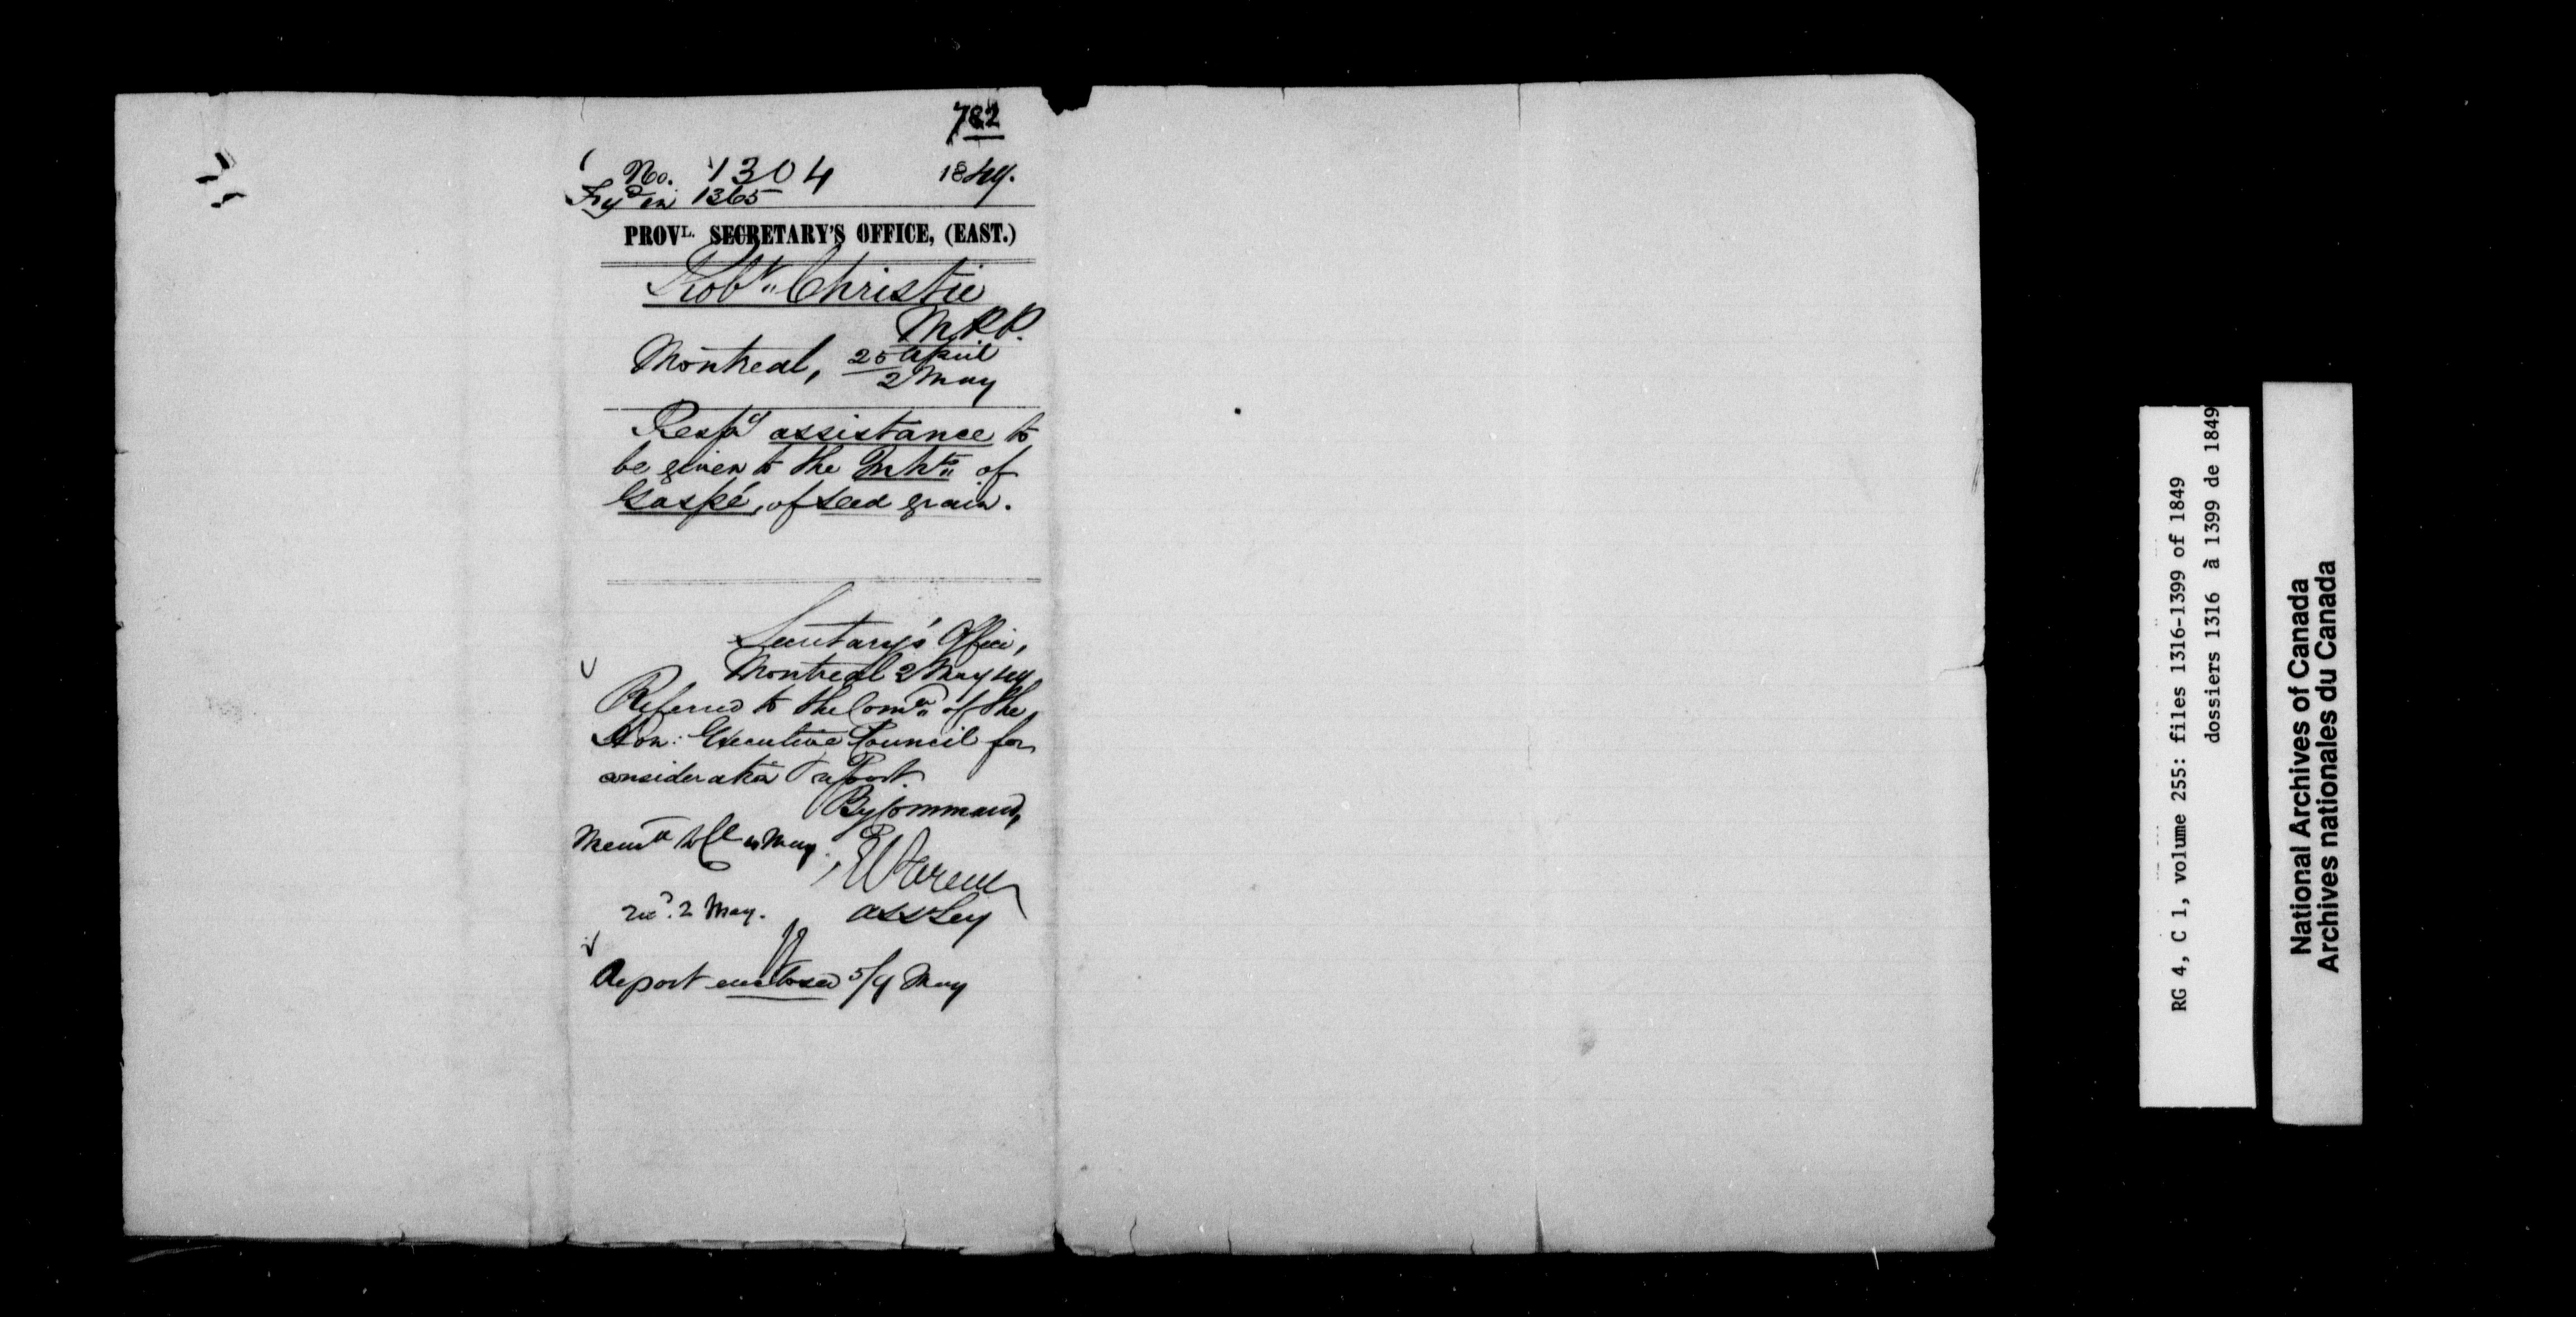 782
No. 1304 1849.
Fyd in 1365
PROVL. SECRETARY'S OFFICE, (EAST.)
Robt Christie
M.P.P.
Montreal, 25 April
2 May
Respg assistance to
be given to the Inhts of
Gaspé, of seed grain.
Secretary's Office,
Montreal 2 May 49
Referred to the Comee of the
Hon: Executive Council for
consideration & report
By Command,
May.
E Parent
Ass Sey
Recd. 2 May.
Report enclosed 5/9 May
RG 4, C 1, volume 255: files 1316-1399 of 1849
dossiers 1316 à 1399 de 1849
National Archives of Canada
Archives nationales du Canada